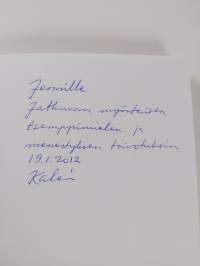 Jermille
Jatkuvan myönteisen
tsemppimielen ja
menestyksen toivotuksin
19.1.2012
Kalevi